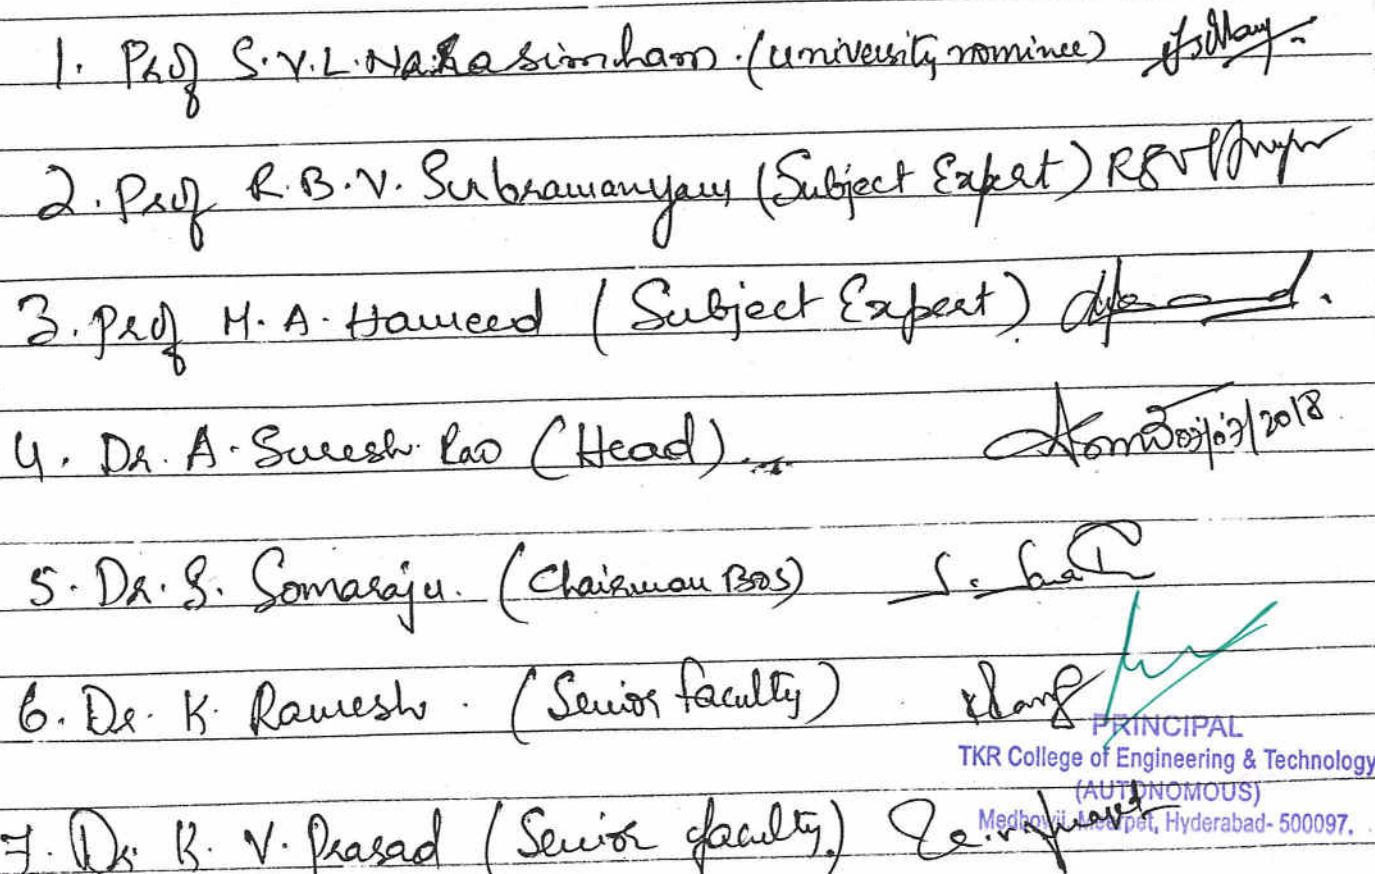 1. Prof S.V.L. Narasimham. (University nominee)
2. Prof R.B.V. Subramanyam (Subject Expert)
3. Prof M.A. Hameed (Subject Expert)
4. Dr. A. Suresh Rao (Head) 07/07/2018
5. Dr. S. Somaraju. (Chairman BOS)
6. Dr. K. Ramesh. (Senior faculty)
PRINCIPAL
TKR College of Engineering & Technology
(AUTONOMOUS)
Medbowli, Meerpet, Hyderabad- 500097.
7. Dr. K. V. Prasad (Senior faculty)